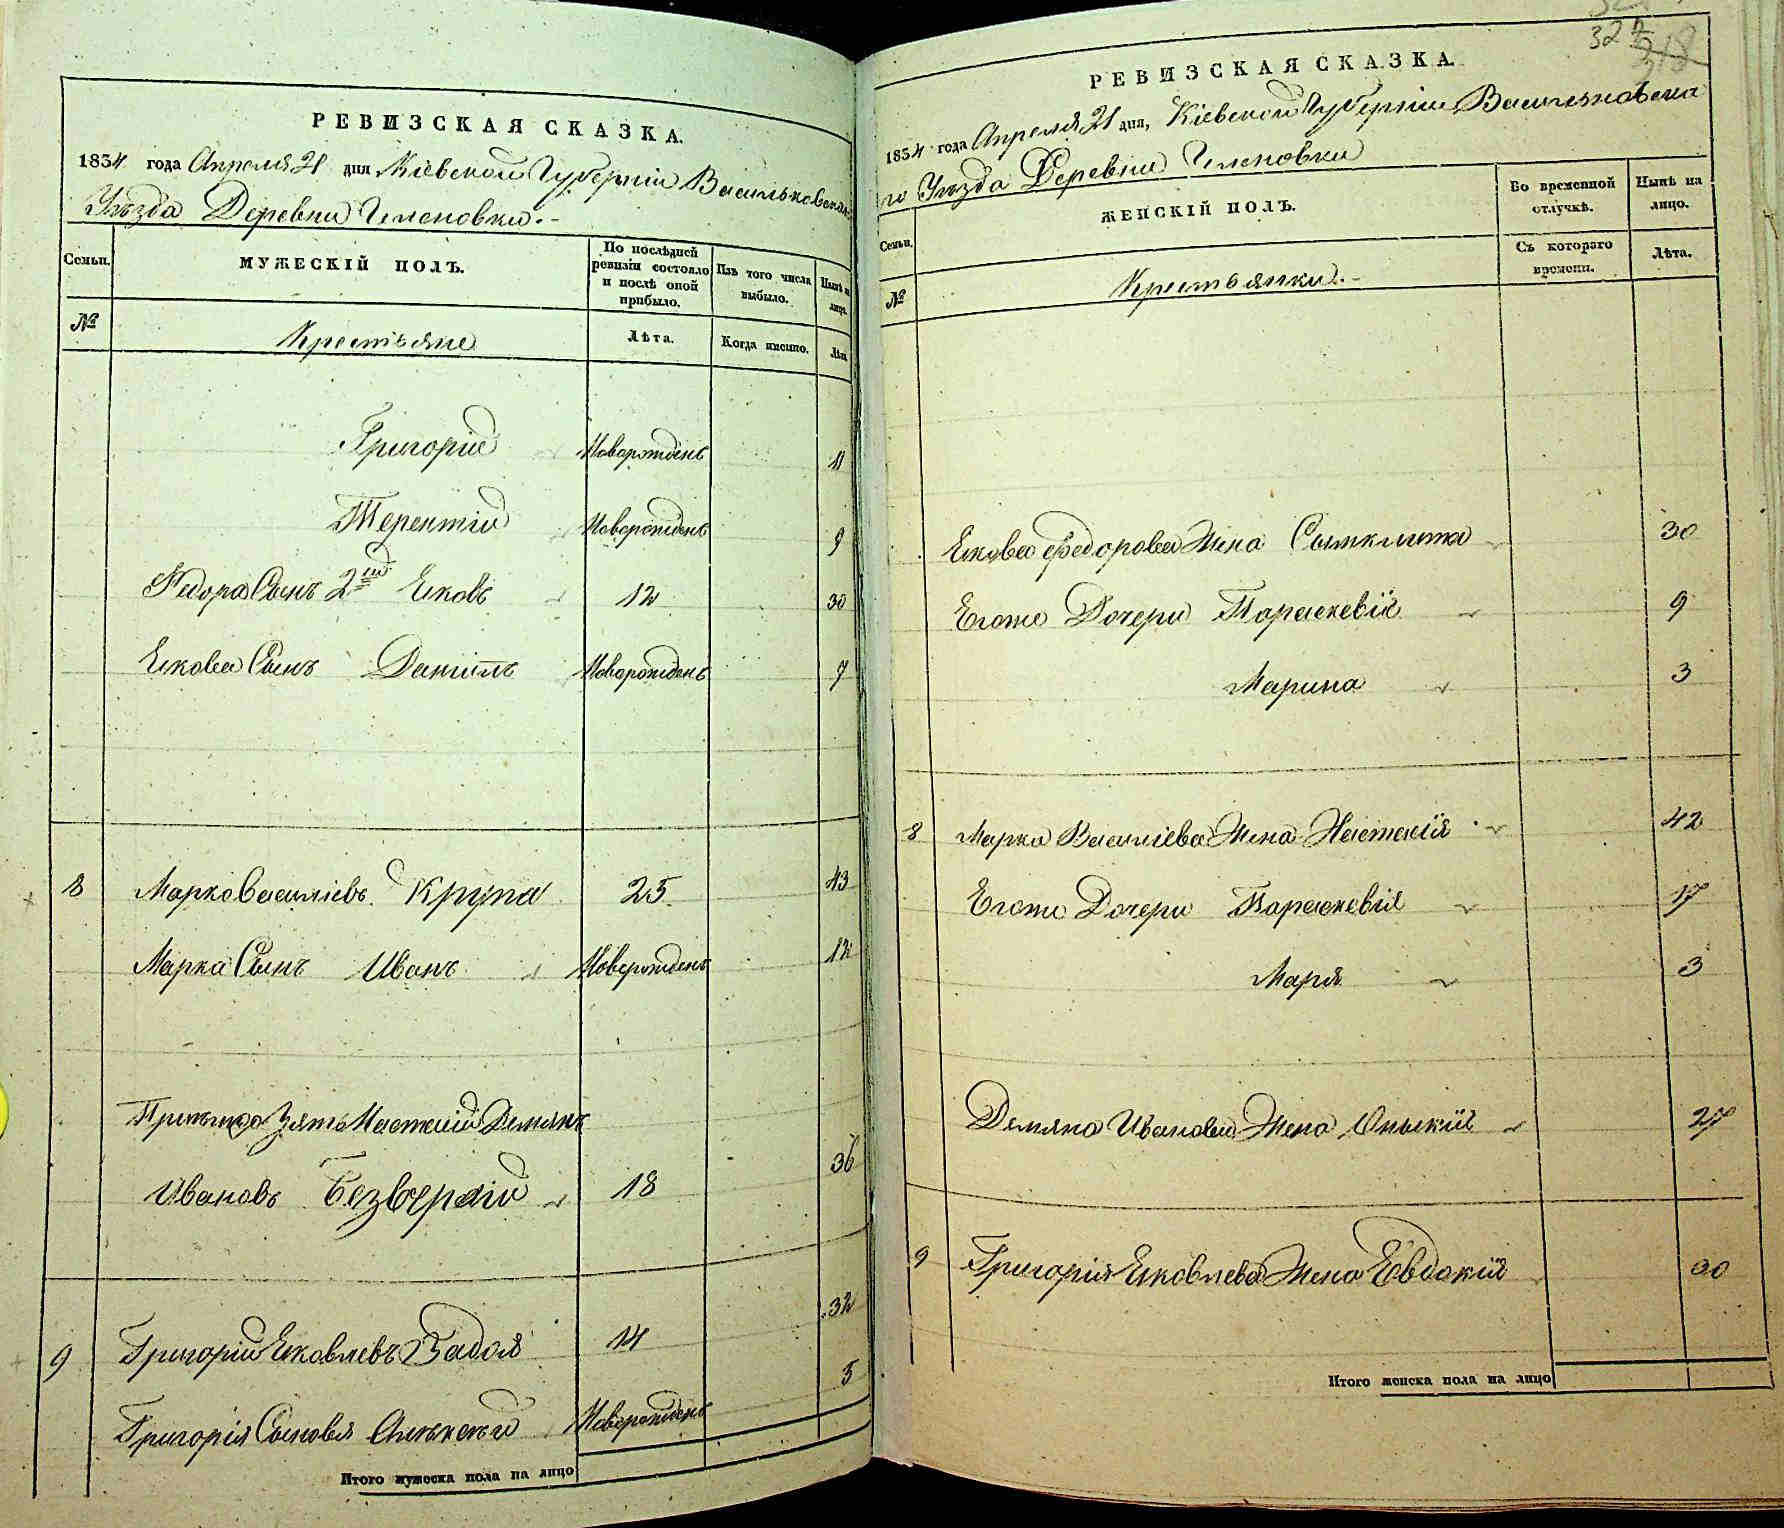 РЕВИЗСКАЯ СКАЗКА.
1834 года Апреля 21 дня Кіевской Губерніи Васильковскаго
Уѣзда Деревни
Семьи.
МУЖЕСКІЙ ПОЛЪ.
По послѣдней ревизіи состояло и послѣ оной прибыло.
Изъ того числа выбыло.
Нынѣ на лицо.
№
Крестьяне
Лѣта.
Когда имянно.
Лѣта.
Григорій Новорожденъ 11
Терентій Новорожденъ 9
Федора Сынъ 2й Яковъ 12 30
Якова Сынъ Данiилъ Новорожденъ 7
8 Марко Василіевъ Крупа 25 43
Марка Сынъ Иванъ Новорожденъ 12
Зять Демянъ
Ивановъ 18 36
9 Григорій Яковлевъ 14 32
Григорія Сыновя Алексѣй Новорожденъ 5
Итого мужеска пола на лицо
324
318
РЕВИЗСКАЯ СКАЗКА.
1834 года Апреля 21 дня, Кіевской Губерніи Васильковска
го Уѣзда Деревни
Семьи.
ЖЕНСКІЙ ПОЛЪ.
Во временной отлучкѣ.
Нынѣ на лицо.
№
Крестьянки.
Съ котораго времени.
Лѣта.
Якова Федорова Жена 30
Егоже Дочери Параскевія 9
Марина 3
8 Марка Василіева Жена Настасія 42
Егоже Дочери Параскевія 17
Марія 3
Демяна Иванова Жена 27
9 Григорія Яковлева Жена Евдокія 30
Итого женска пола на лицо